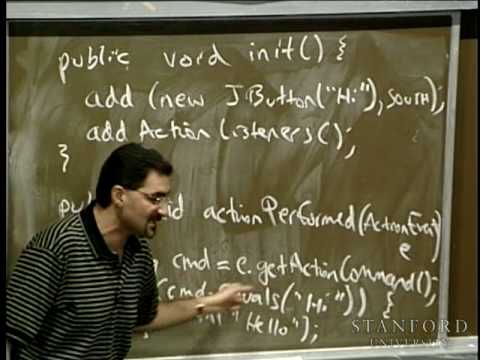 public void init() {
add (new JButton("Hi"), SOUTH);
addActionListeners();
}
actionPerformed(ActionEvent
e)
cmd = e.getActionCommand();
(cmd. ("Hi")) {
"Hello");
STANFORD
UNIVERSITY